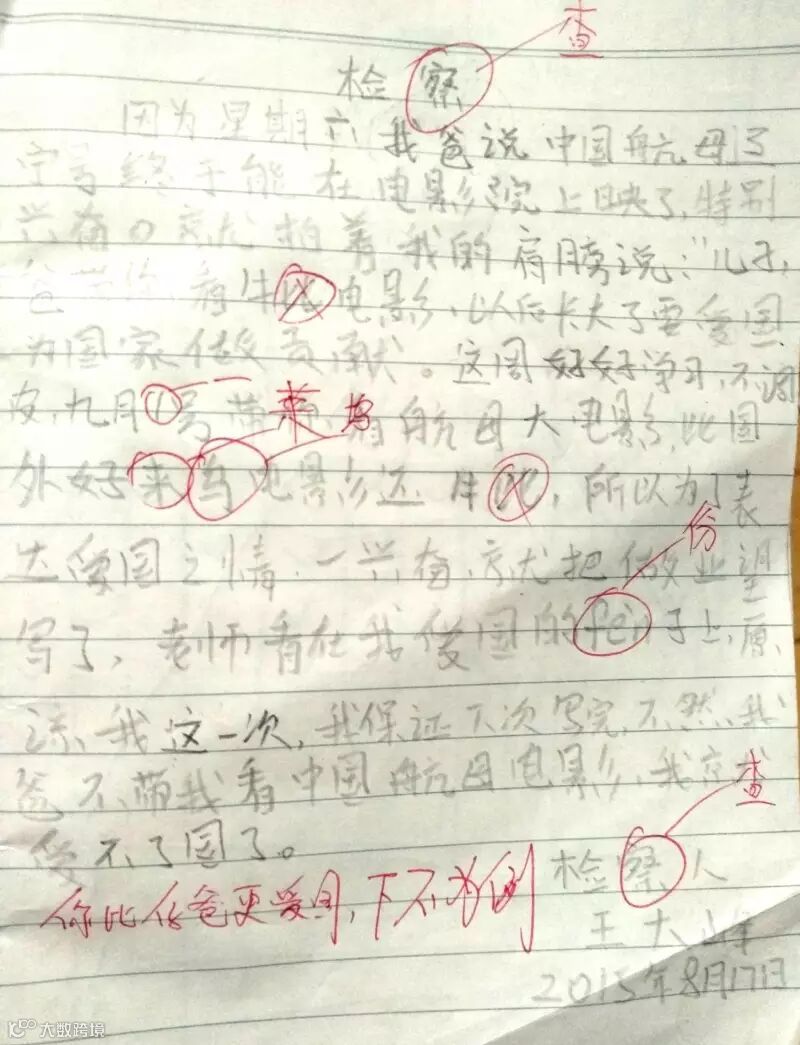 查
检察
因为星期六我爸说中国航母辽
宁号终于能在电影院上映了,特别
兴奋。就拍着我的肩膀说:"儿子,
爸带你看牛 电影,以后长大了要爱国
为国家做贡献。这周好好学习,不调
皮,九月1号带你看航母大电影,比国
一 莱 坞
外好来乌电影还牛 ,所以为了表
份
达爱国之情,一兴奋,就把做业望
写了,老师看在我爱国的fèn子上,原
谅我这一次,我保证下次写完,不然我
爸不带我看中国航母电影,我就
爱不了国了。
查
检察人
你比你爸更爱国,下不为例
王大
2015年8月17日
大数跨境